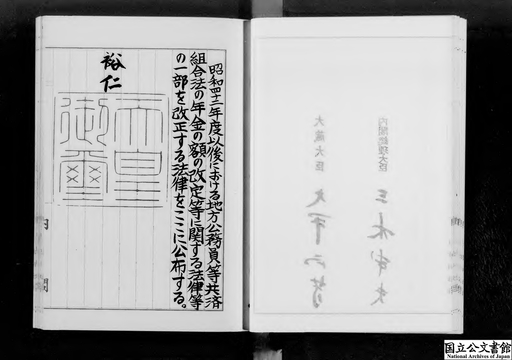 昭和四十三年度以後における地方公務員等共済
組合法の年金の額の改定等に関する法律等
の一部を改正する法律をここに公布する。
裕仁
天皇
御璽
内閣
内閣総理大臣
大蔵大臣
国立公文書館
National Archives of Japan